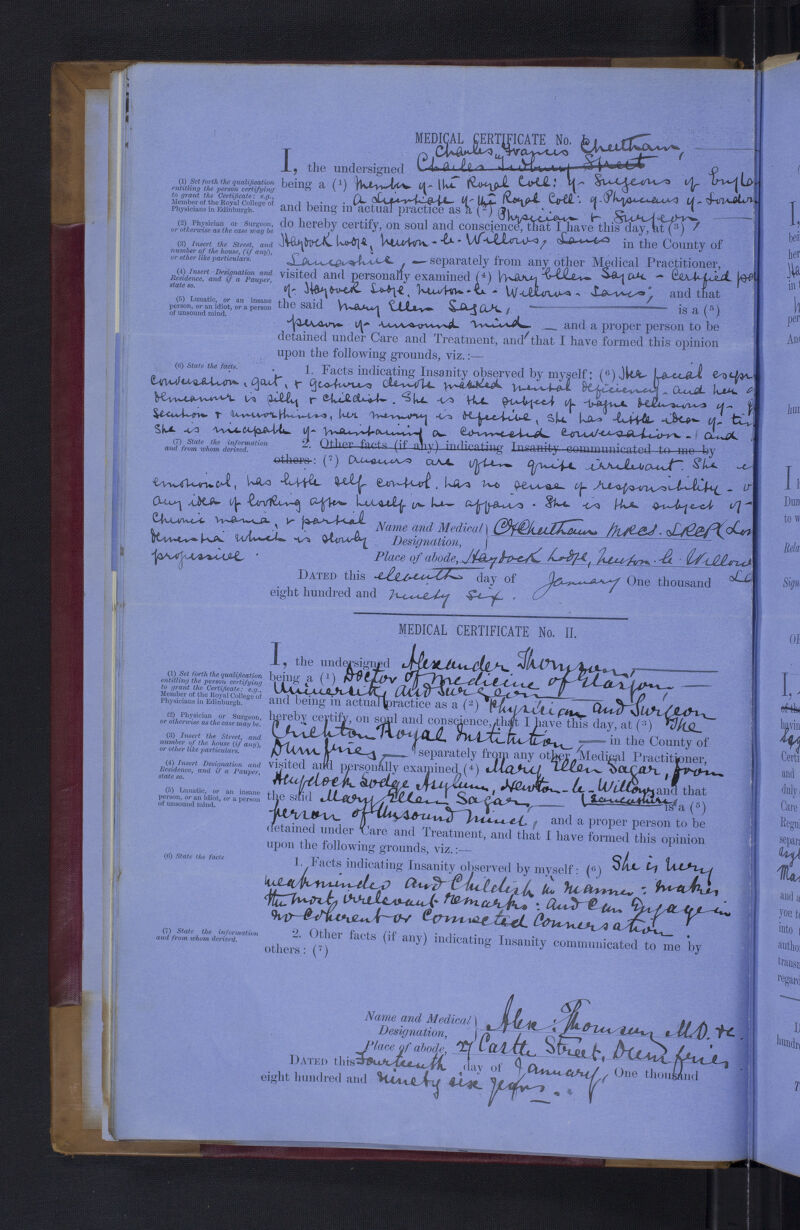 MEDICAL CERTIFICATE No. I.
Charles Francis Cheetham,
I, the undersigned Charles Sidbury Street
(1) Set forth the qualification entitling the person certifying to grant the Certificate; e.g., Member of the Royal College of Physicians in Edinburgh.
being a (1) Member of the Royal Coll: of Surgeons of Engla
a Licentiate of the Royal Coll: of Physicians of London
and being in actual practice as a (2) Physician & Surgeon
(2) Physician or Surgeon, or otherwise as the case may be
do hereby certify, on soul and conscience, that I have this day, at (3)
(3) Insert the Street, and number of the house, (if any), or other like particulars.
Haydock Lodge, Newton-le-Willows, Lancs in the County of
Lancashire, — separately from any other Medical Practitioner,
(4) Insert Designation and Residence, and if a Pauper, state so.
visited and personally examined (4) Mary Ellen Sagar – Certified
of Haydock Lodge, Newton-le-Willows – Lancs; and that
(5) Lunatic, or an insane person, or an idiot, or a person of unsound mind.
the said Mary Ellen Sagar, is a (5)
person of unsound mind — and a proper person to be
detained under Care and Treatment, and that I have formed this opinion
upon the following grounds, viz.:—
(6) State the facts.
1. Facts indicating Insanity observed by myself: (6) Her facial
conversation, gait, & gestures denote marked mental deficiency – and her
demeanour is silly & childish. She is the subject of vague delusions of
& unworthiness, her memory is defective, she has little idea of
She is incapable of maintaining a connected conversation – and
(7) State the information and from whom derived.
2. Other facts (if any) indicating Insanity communicated to me by
others: (7) answers are often quite irrelevant. She
emotional, has little self control, has no sense of responsibility –
any idea of looking after herself or her affairs. She is the subject of
Chronic mania, & partial
Dementia which is slowly
progressive.
Name and Medical Designation, C F Cheetham MRCS. LRCP Lon
Place of abode, Haydock Lodge, Newton-le-Willows
DATED this eleventh day of January One thousand
eight hundred and ninety six.
MEDICAL CERTIFICATE No. II.
I, the undersigned Alexander Thomson,
(1) Set forth the qualification entitling the person certifying to grant the Certificate; e.g., Member of the Royal College of Physicians in Edinburgh.
being a (1) Doctor of Medicine of Glasgow
University and Surgeon
and being in actual practice as a (2) Physician and Surgeon
(2) Physician or Surgeon, or otherwise as the case may be.
hereby certify, on soul and conscience, that I have this day, at (3) The
(3) Insert the Street, and number of the house (if any), or other like particulars.
Crichton Royal Institution, — in the County of
Dumfries, — separately from any other Medical Practitioner,
(4) Insert Designation and Residence, and if a Pauper, state so.
visited and personally examined (4) Mary Ellen Sagar, from
Heydock Lodge Asylum, Newton-le-Willows and that
(5) Lunatic, or an insane person, or an idiot, or a person of unsound mind.
the said Mary Ellen Sagar, (Lancashire) is a (5)
person of Unsound mind, and a proper person to be
detained under Care and Treatment, and that I have formed this opinion
upon the following grounds, viz.:—
(6) State the facts
1. Facts indicating Insanity observed by myself: (6) She is very
weakminded and Childish in manner: makes
the most irrelevant remarks: and can engage in
no coherent or Connected Conversation.
(7) State the information and from whom derived.
2. Other facts (if any) indicating Insanity communicated to me by
others: (7)
Name and Medical Designation, Alex. Thomson M.D. &c.
Place of abode, 27 Castle Street, Dumfries.
DATED this Fourteenth day of January, One thousand
eight hundred and ninety six years.